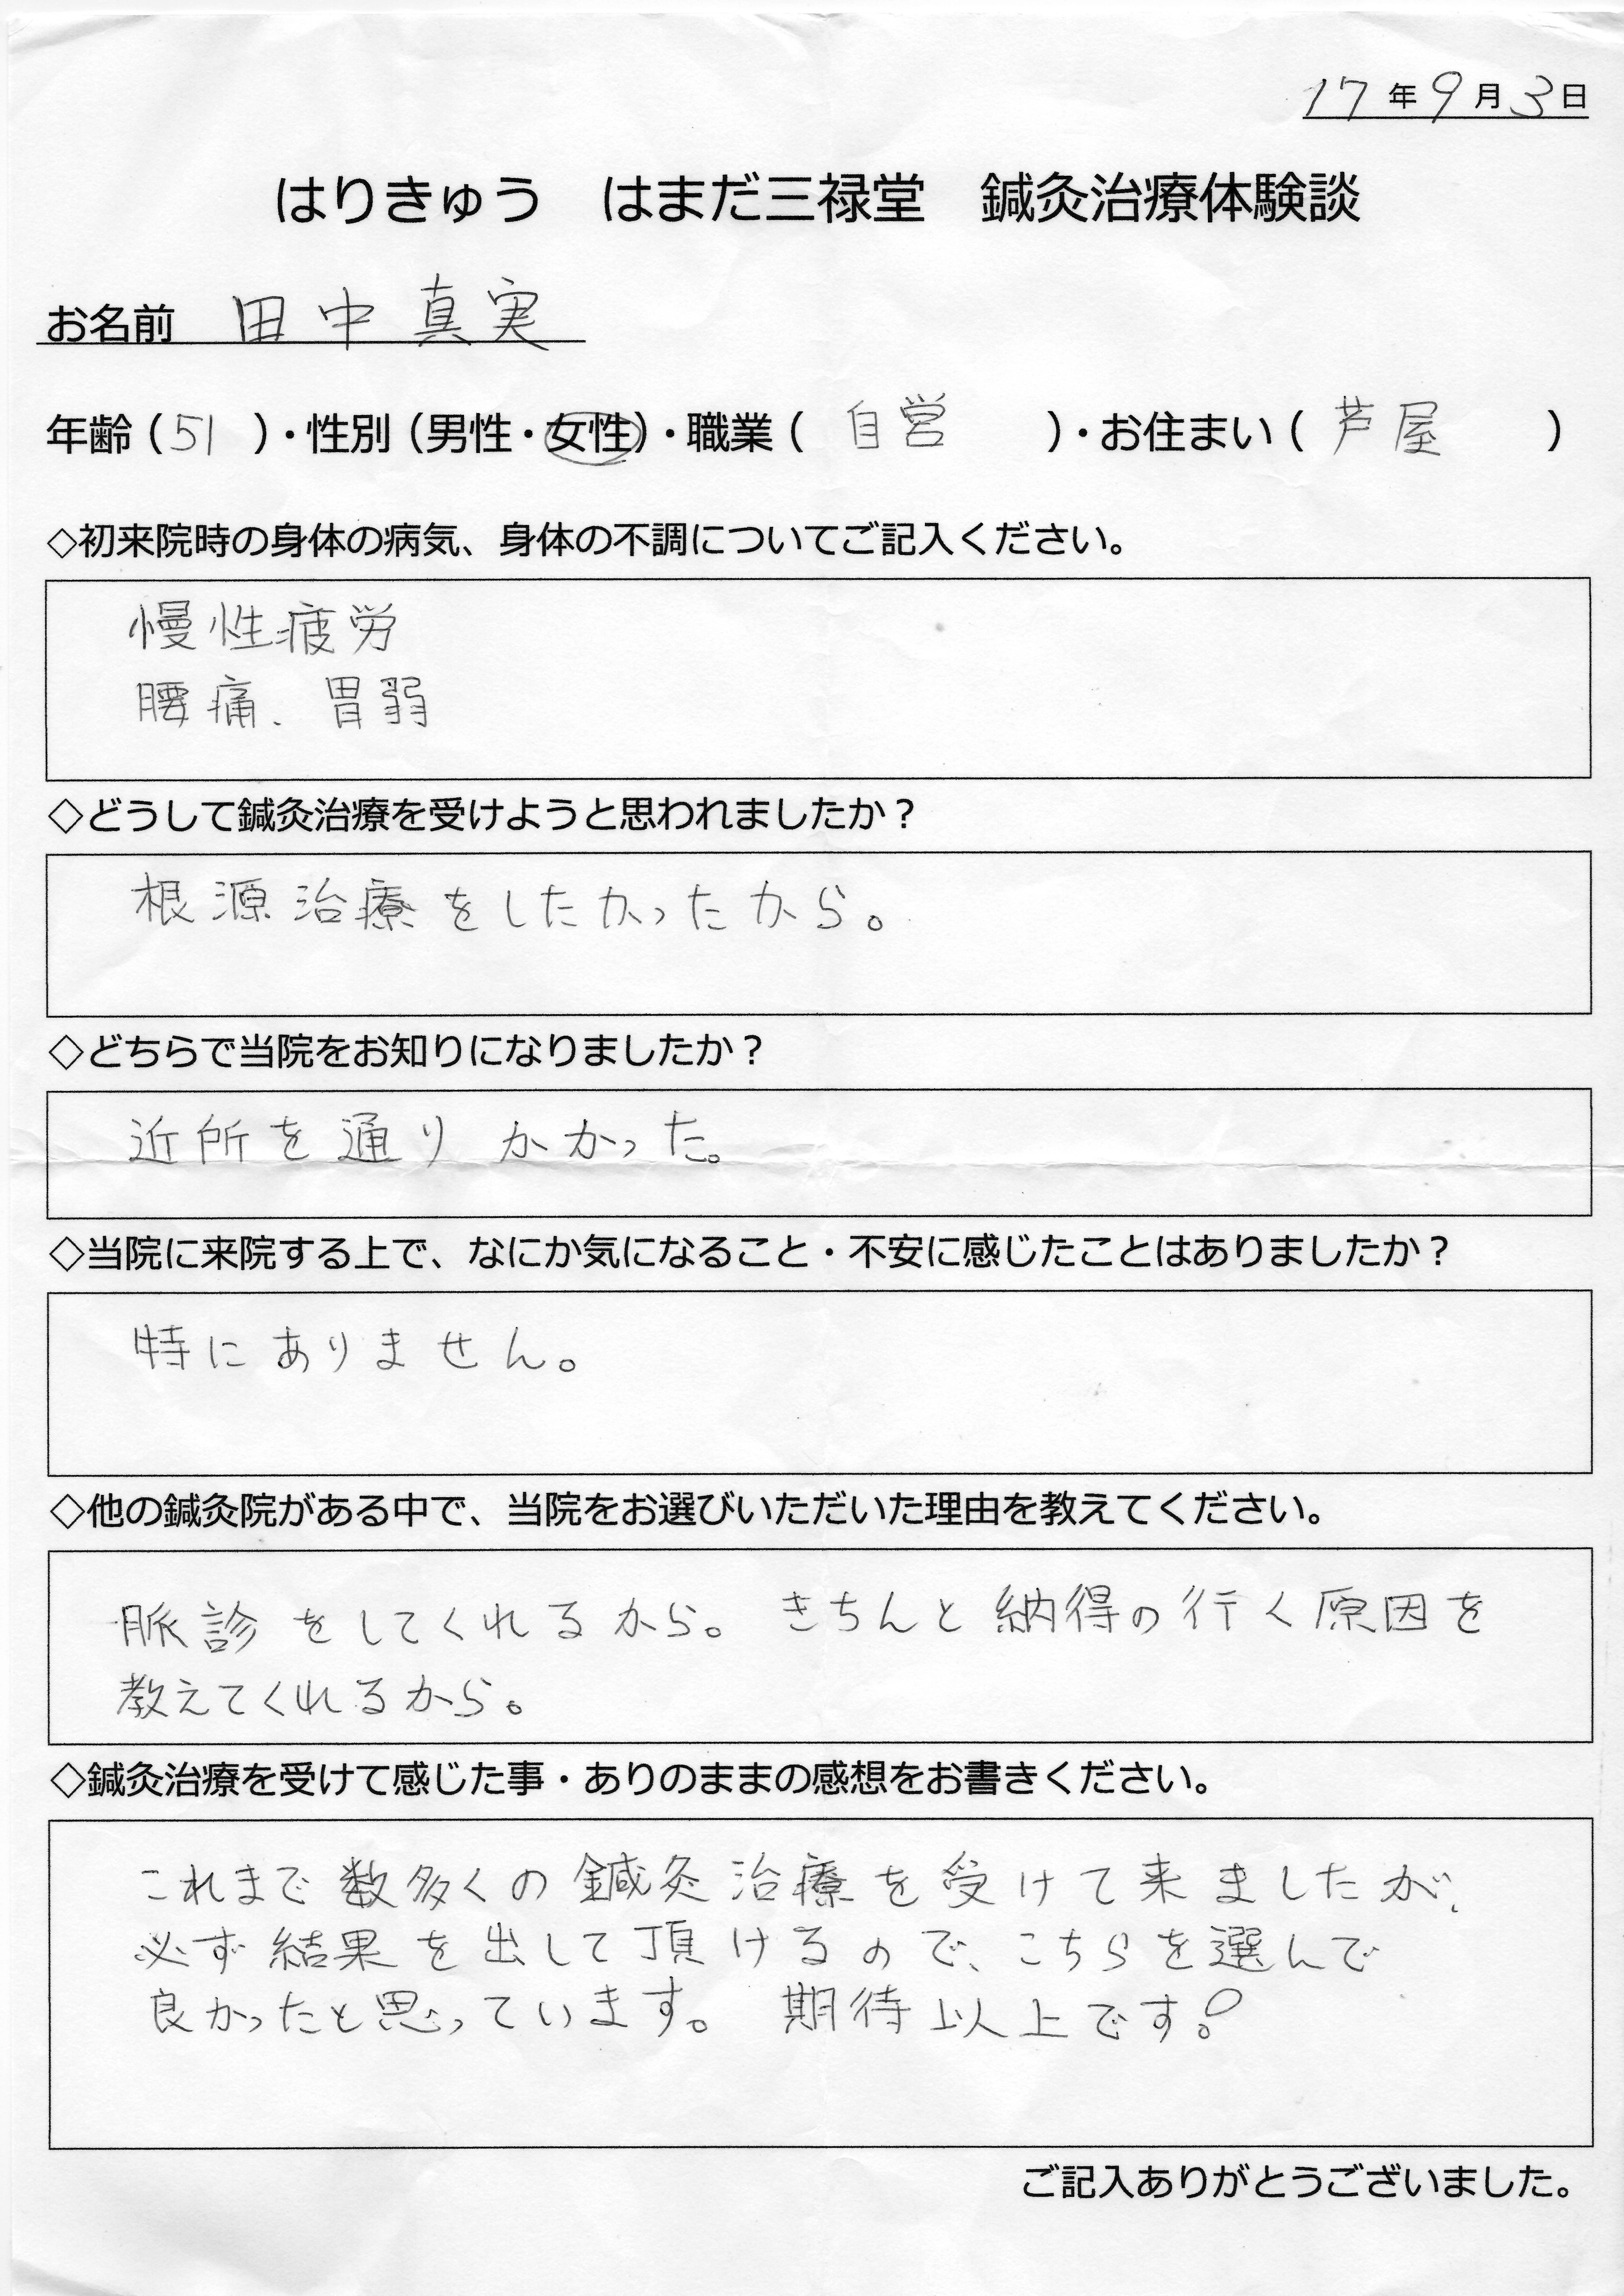 17年9月3日
はりきゅう　はまだ三禄堂　鍼灸治療体験談
お名前　田中真実
年齢（51）・性別（男性・女性）・職業（自営）・お住まい（芦屋）
◇初来院時の身体の病気、身体の不調についてご記入ください。
慢性疲労
腰痛、胃弱
◇どうして鍼灸治療を受けようと思われましたか？
根源治療をしたかったから。
◇どちらで当院をお知りになりましたか？
近所を通りかかった。
◇当院に来院する上で、なにか気になること・不安に感じたことはありましたか？
特にありません。
◇他の鍼灸院がある中で、当院をお選びいただいた理由を教えてください。
脈診をしてくれるから。きちんと納得の行く原因を
教えてくれるから。
◇鍼灸治療を受けて感じた事・ありのままの感想をお書きください。
これまで数多くの鍼灸治療を受けて来ましたが、
必ず結果を出して頂けるので、こちらを選んで
良かったと思っています。期待以上です！
ご記入ありがとうございました。